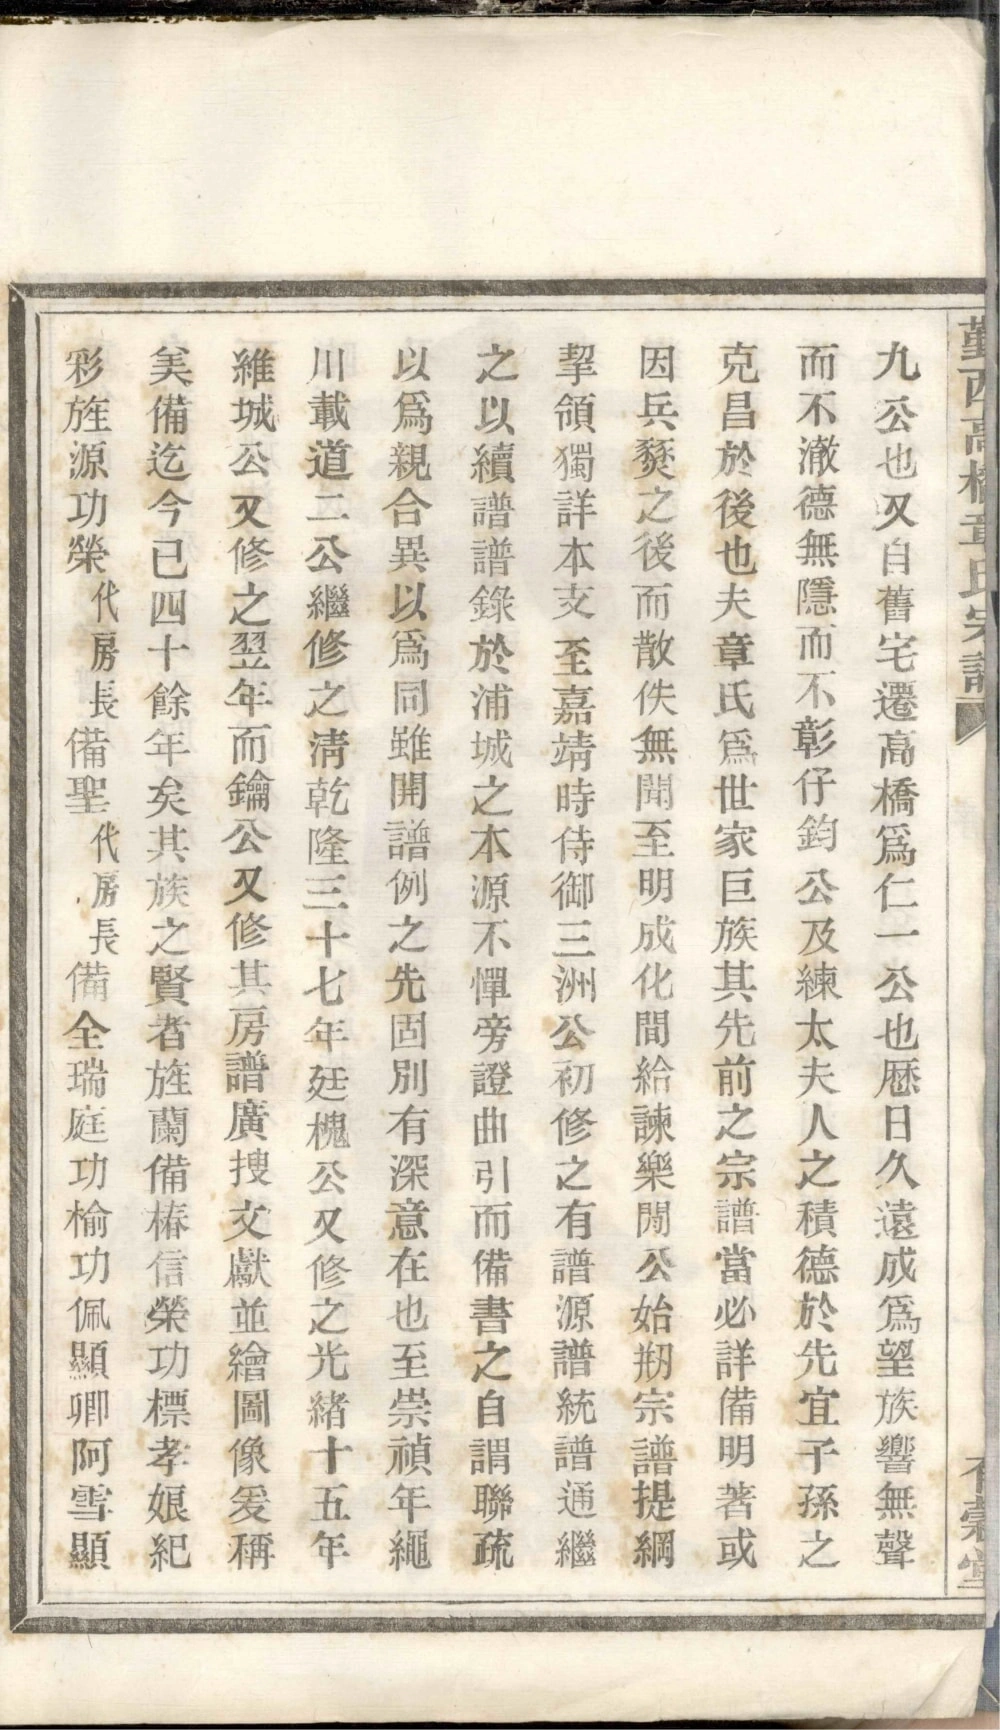 九公也又自舊宅遷高橋爲仁一公也歷日久遠成爲望族響無聲
而不澈德無隱而不彰仔鈞公及練太夫人之積德於先宜子孫之
克昌於後也夫章氏爲世家巨族其先前之宗譜當必詳備明著或
因兵燹之後而散佚無聞至明成化間給諫樂閒公始剏宗譜提綱
挈領獨詳本支至嘉靖時侍御三洲公初修之有譜源譜統譜通繼
之以續譜譜錄於浦城之本源不憚旁證曲引而備書之自謂聯疏
以爲親合異以爲同雖開譜例之先固別有深意在也至崇禎年繩
川載道二公繼修之淸乾隆三十七年廷槐公又修之光緒十五年
維城公又修之翌年而鑰公又修其房譜廣搜文獻並繪圖像爰稱
美備迄今已四十餘年矣其族之賢者旌蘭備椿信榮功標孝娘紀
彩旌源功榮代房長備聖代房長備全瑞庭功楡功佩顯卿阿雪顯
西高橋章氏宗譜